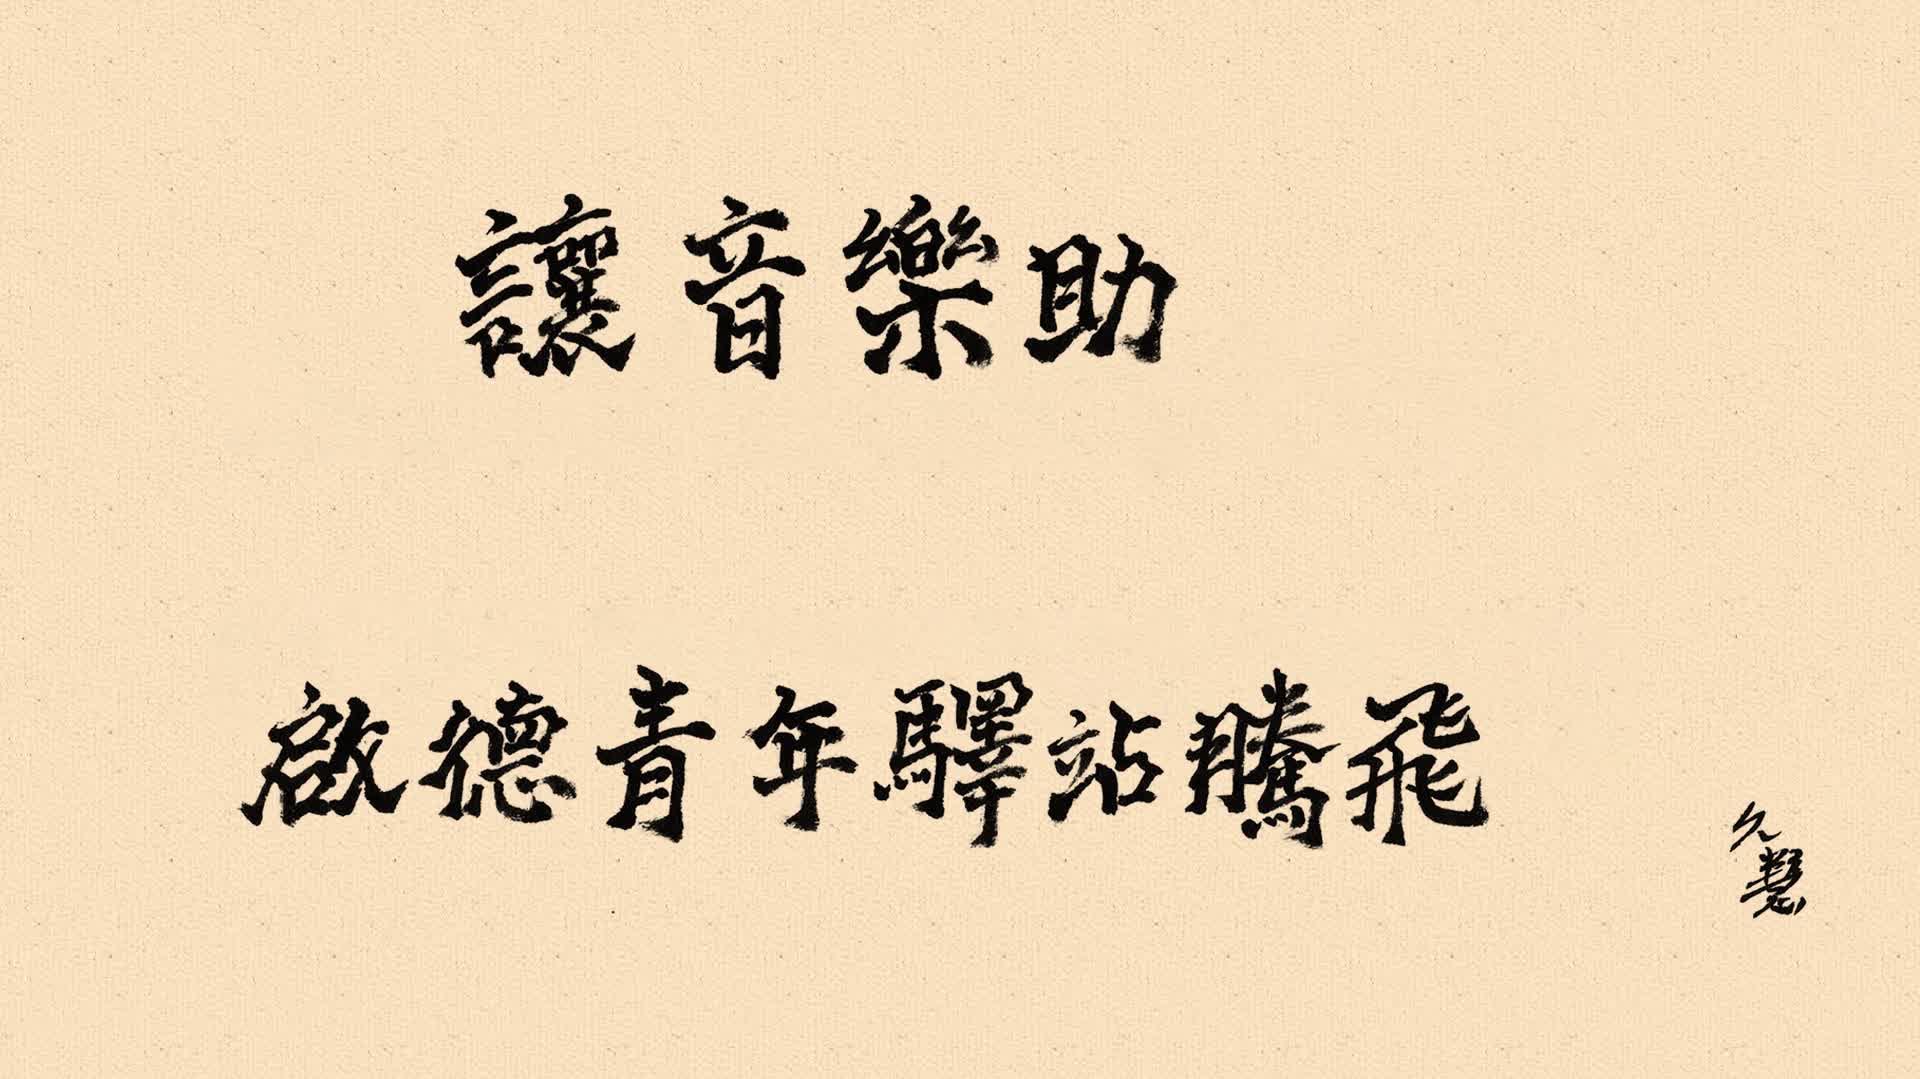 讓音樂助
啟德青年驛站騰飛
久慧